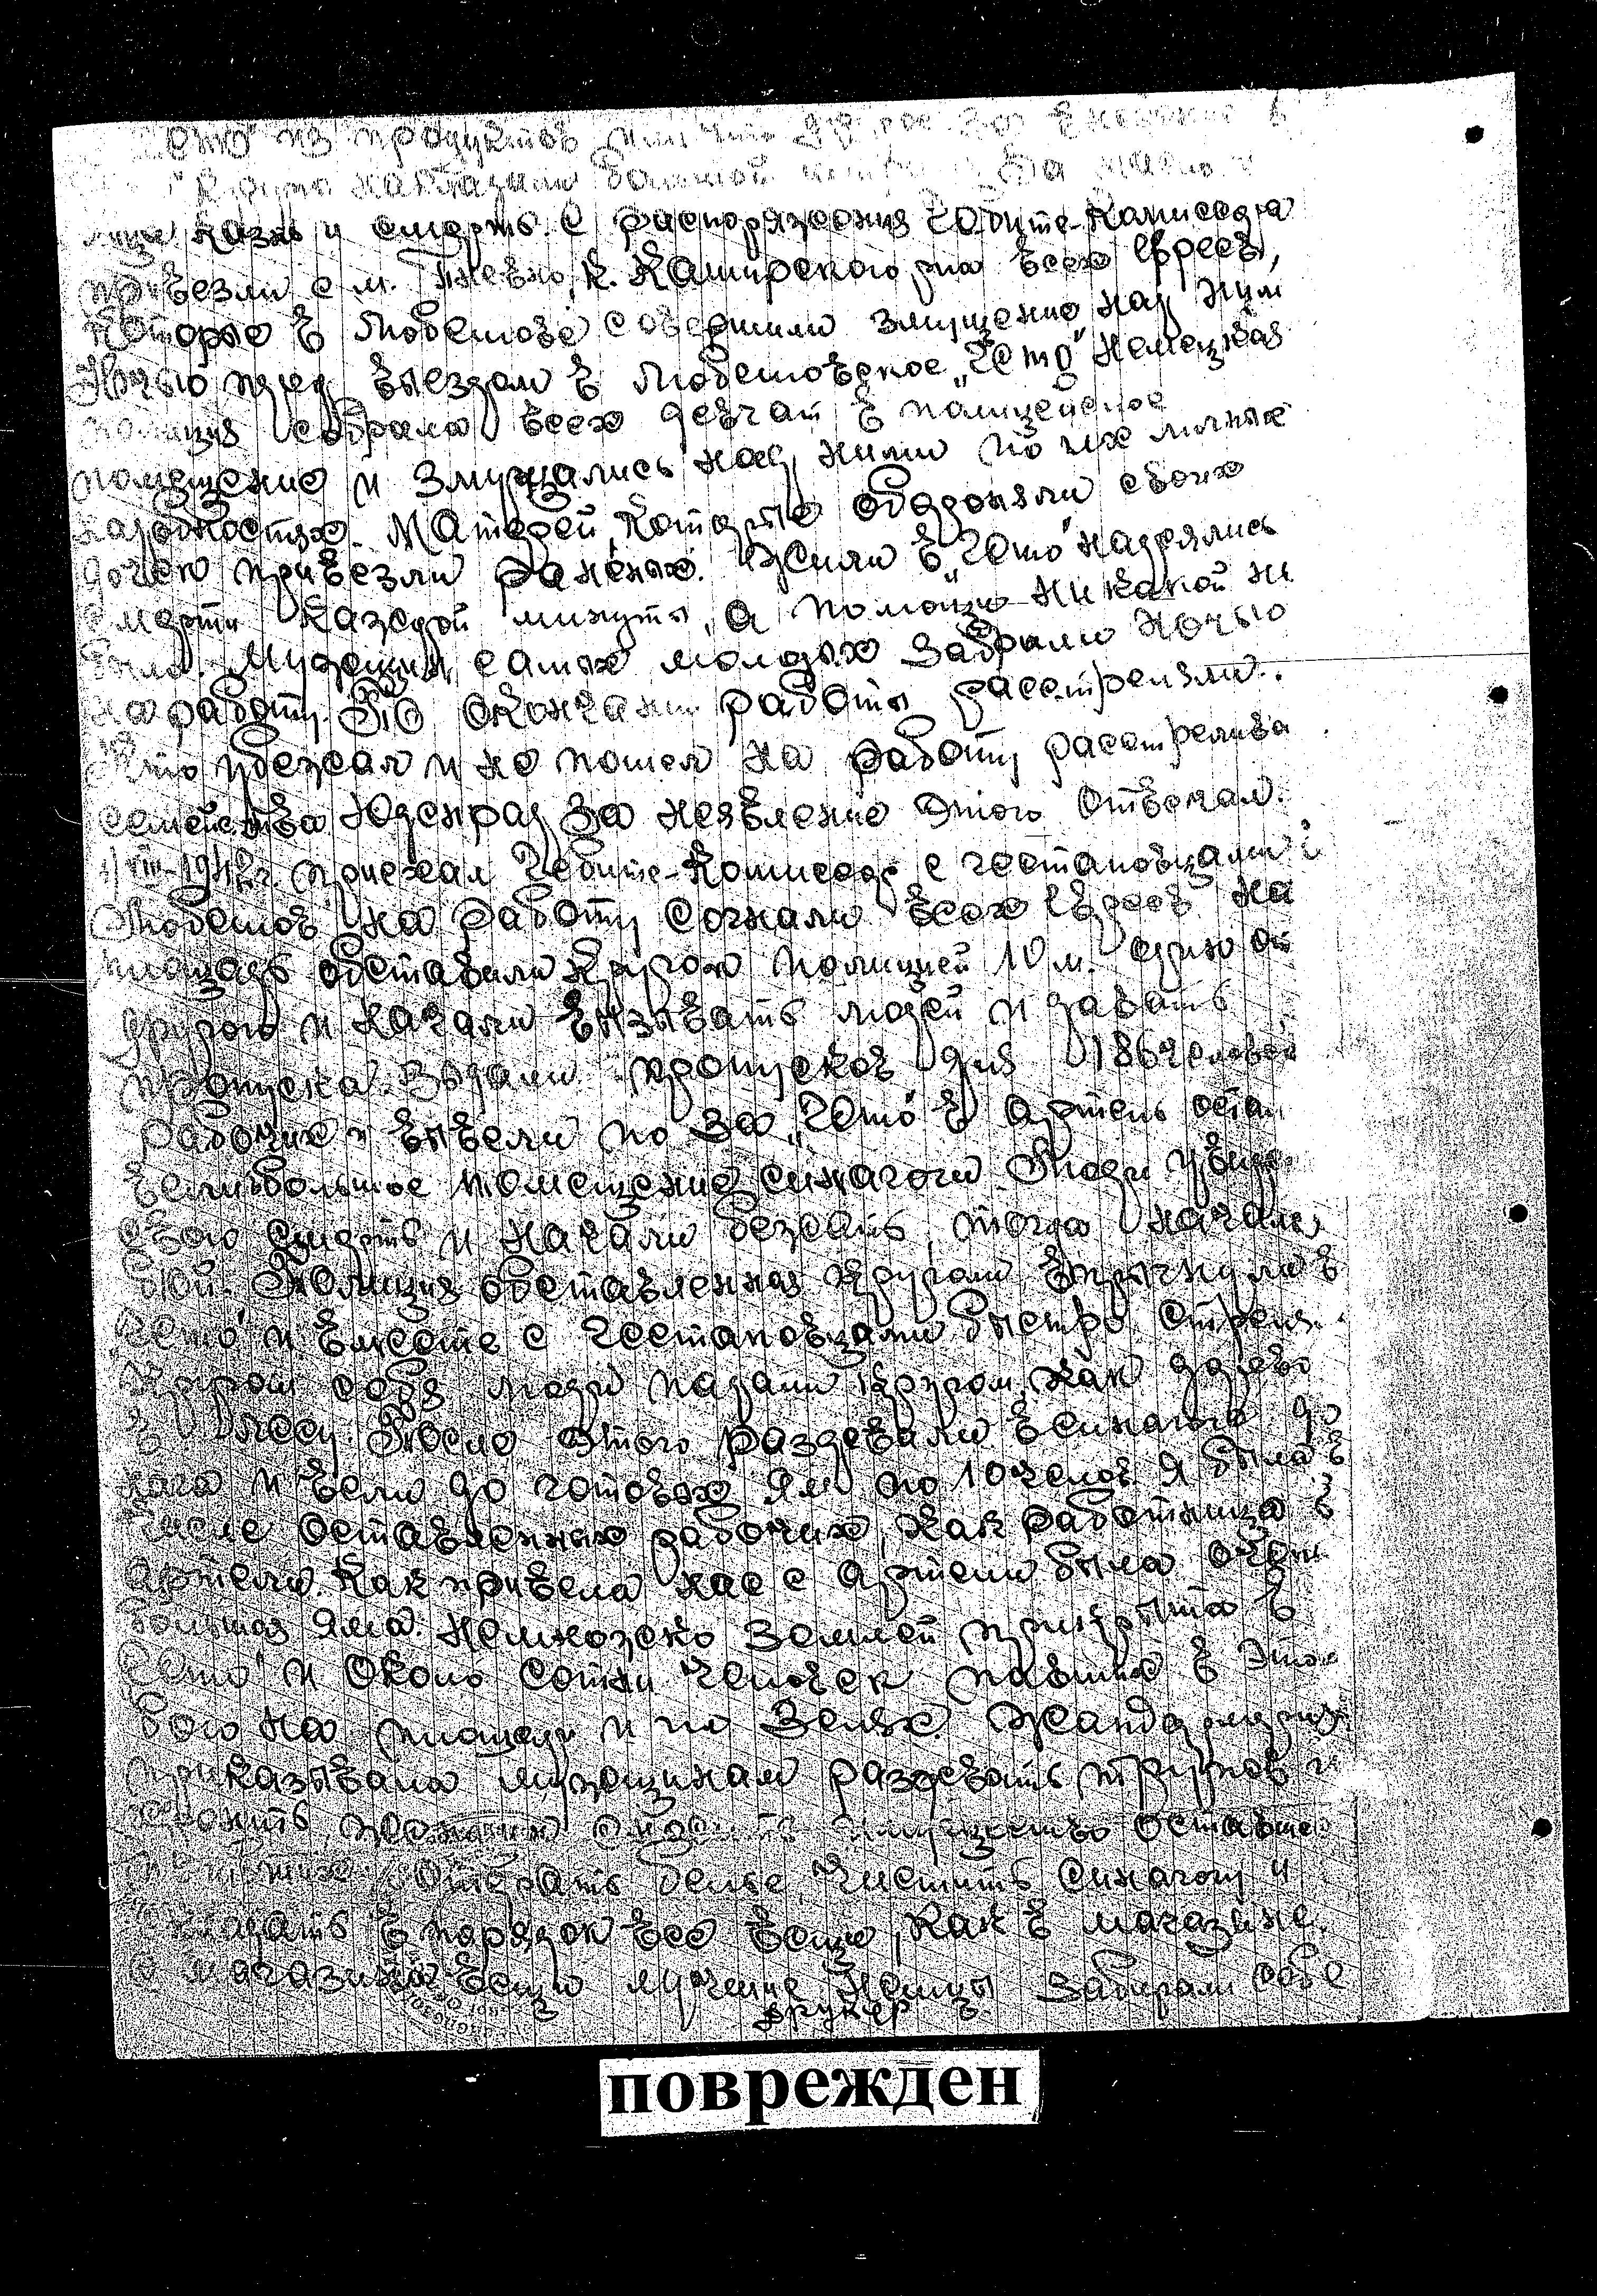 из продуктов или что другое за
наказали большой
казнь и смерть. С распоряжения Гебите-Камисара
привезли с м. Гневно, К. Каширского рна всех евреев,
которые в Любешове совершили змущение над ним
Ночью пред выездом в Любешовское „Гето" немецкая
полиция собрала всех девчат в полицейное
помещение и змущались над ними по их личных
Матерей, которые обороняли своих
дочек привезли раненых. Жили в „Гето" надеялись
смерти каждой минуты, а помощи никакой не
было. Мужщин самых молодых забрали ночью
на работу. По окончани работы расстреляли.
Кто убежал и не пошел на работу расстрелива
семейства Юденрад за неявление этого отвечал.
VIII-1942г. приехал Гебите-Комисар с гестаповцами в
Любешов на работу согнали всех евреев на
площадь обставили кругом полицией 10 м. один от
другого и начали вызывать людей и давать
пропуска. Выдали пропусков для 186 человек
рабочих и вывели по за „Гето" в артель
помещение синагоги. Люди
свою смерть и начали бежать, тогда начали
бой. Полиция обставленная кругом впрыгнули в
„Гето" и вместе с гестаповцами быстро
Кругом себя люди падали кругом, как дерево
в лесу. После этого раздевали в синагоге до
нага и вели до готовых ям по 10 челов. Я была в
числе оставленных рабочих, как работница в
артели. Как привела нас с артели была очень
большая яма немножко землей прикрыта в
„Гето" и около сотни человек павших в этом
бою на площади и по земле. Жандармерия
приказывала мужщинам раздевать трупов и
имущество
отбирать белье, чистить синагогу и
складать в порядок все вещи, как в магазине.
С магазина вещи лучшие немцы забирали себе
Друкер
поврежден